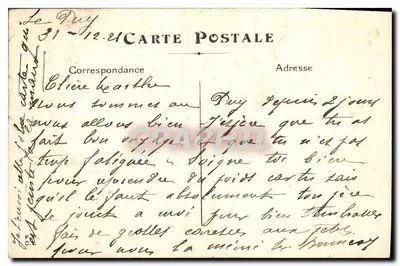 Le Puy
31-12-21
CARTE POSTALE
Correspondance
Adresse
Chère
Nous sommes au Puy depuis 2 jours
nous allons bien J'espère que tu as
fait bon voyage et que tu n'es pas
trop fatiguée Soigne toi bien
pour reprendre du poids car tu sais
qu'il le faut absolument ton père
se joint à moi pour bien t'embrasser
fais de grosses caresses aux
pour nous la même
Je t'envoie la carte qui
est